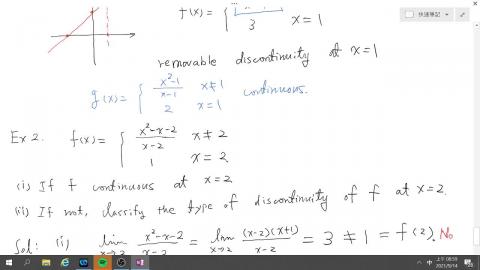 f(x) = {
3 x = 1
1
removable discontinuity at x=1
g(x) = { x²-1 / x-1 x≠1
2 x=1 continuous.
Ex 2. f(x) = { x²-x-2 / x-2 x≠2
1 x = 2
(i) If f continuous at x=2
(ii) If not, classify the type of discontinuity of f at x=2.
Sol: (i) lim x→2 x²-x-2 / x-2 = lim x→2 (x-2)(x+1) / x-2 = 3 ≠ 1 = f(2). No
快速筆記
上午 08:59
2021/9/14